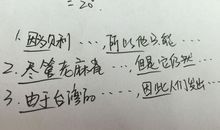 =20°.
1. 因为贝利…，所以他只能…
2. 尽管老麻雀…，但是它仍然…
3. 由于台湾的……，因此人们发出…